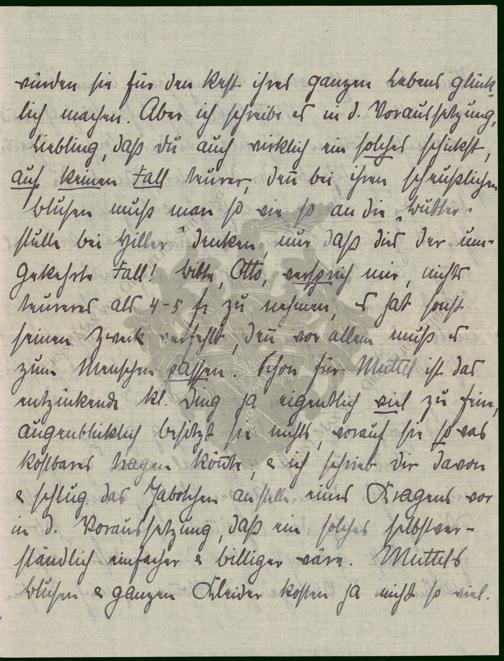 würden sie für den Rest ihres ganzen Lebens glück-
lich machen. Aber ich schreibe es in d. Voraussetzung,
Liebling, daß du auch wirklich ein solches schickst,
auf keinen Fall teurer, deñ bei ihren scheußlichen
Blusen muß man so wie so an die
stulle bei Hiller" denken, nur daß dies der um-
gekehrte Fall! Bitte, Otto, versprich mir, nichts
teureres als 4-5 fr zu nehmen, es hat sonst
seinen Zweck verfehlt, deñ vor allem muß es
zum Menschen passen. Schon für Muttel ist das
entzückende kl. Ding ja eigentlich viel zu fein,
augenblicklich besitzt sie nichts, worauf sie so was
kostbares tragen könnte, & ich schrieb dir davon
& schlug das Jabotchen anstelle eines Kragens vor
in d. Voraussetzung, daß ein solches selbstver-
ständlich einfacher & billiger wäre. Muttels
Blusen & ganzen Kleider kosten ja nicht so viel.